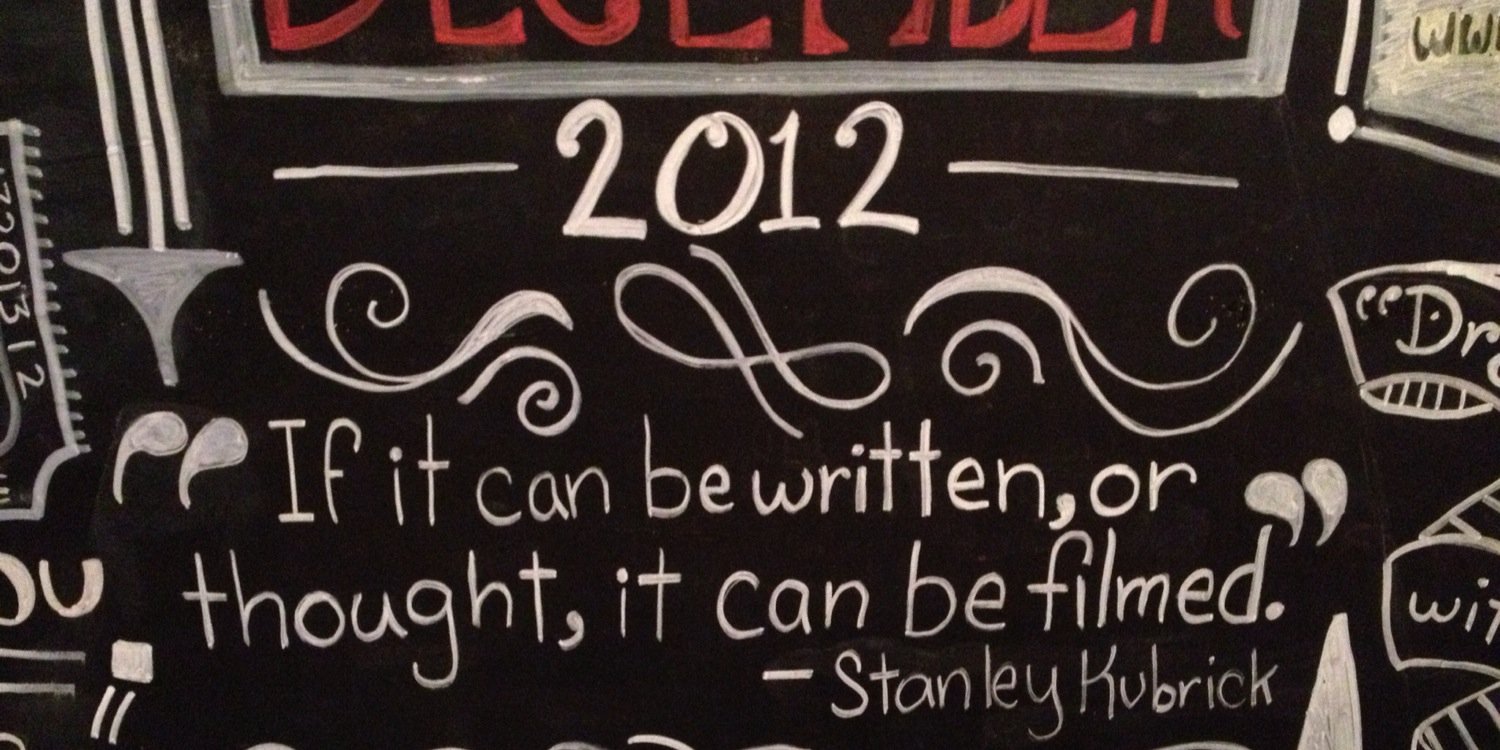 DECEMBER
2012
“If it can be written, or
thought, it can be filmed.”
- Stanley Kubrick
“Dr
wit
ou